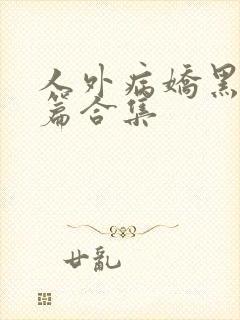 人外病嬌黑
篇合集
廿亂